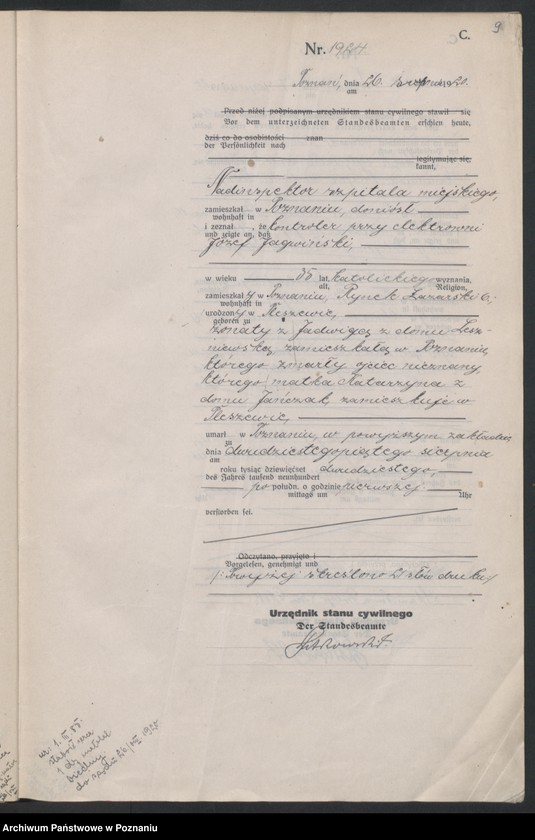 C.
9
Nr. 1944
Poznań, dnia 26. sierpnia 1920.
am
Przed niżej podpisanym urzędnikiem stanu cywilnego stawił się
Vor dem unterzeichneten Standesbeamten erschien heute,
dziś co do osobistości znan
der Persönlichkeit nach
legitymując się
kannt,
Nadinspektor szpitala miejskiego,
zamieszkał w Poznaniu, doniósł
wohnhaft in
i zeznał, że kontroler przy elektrowni
und zeigte an, daß
Józef Jagwiński,
w wieku 35 lat, katolickiego wyznania,
alt, Religion,
zamieszkały w Poznaniu, Rynek Łazarski 6,
wohnhaft in
urodzony w Pleszewie,
geboren zu
żonaty z Jadwigą z domu Lesz-
niewską zamieszkałą w Poznaniu,
którego zmarły ojciec nieznany,
którego matka Katarzyna z
domu Jańczak zamieszkuje w
Pleszewie,
umarł w Poznaniu, w powyższym zakładzie,
zu
dnia dwudziestegopiątego sierpnia
am
roku tysiąc dziewięćset dwudziestego,
des Jahres tausend neunhundert
po połudn. o godzinie pierwszej.
mittags um Uhr
verstorben sei.
Odczytano, przyjęto i
Vorgelesen, genehmigt und
Powyżej skreślono 21 słów druku
Urzędnik stanu cywilnego
Der Standesbeamte
ur. 1. III 85.
do sądu 26/VIII 1920.
Archiwum Państwowe w Poznaniu